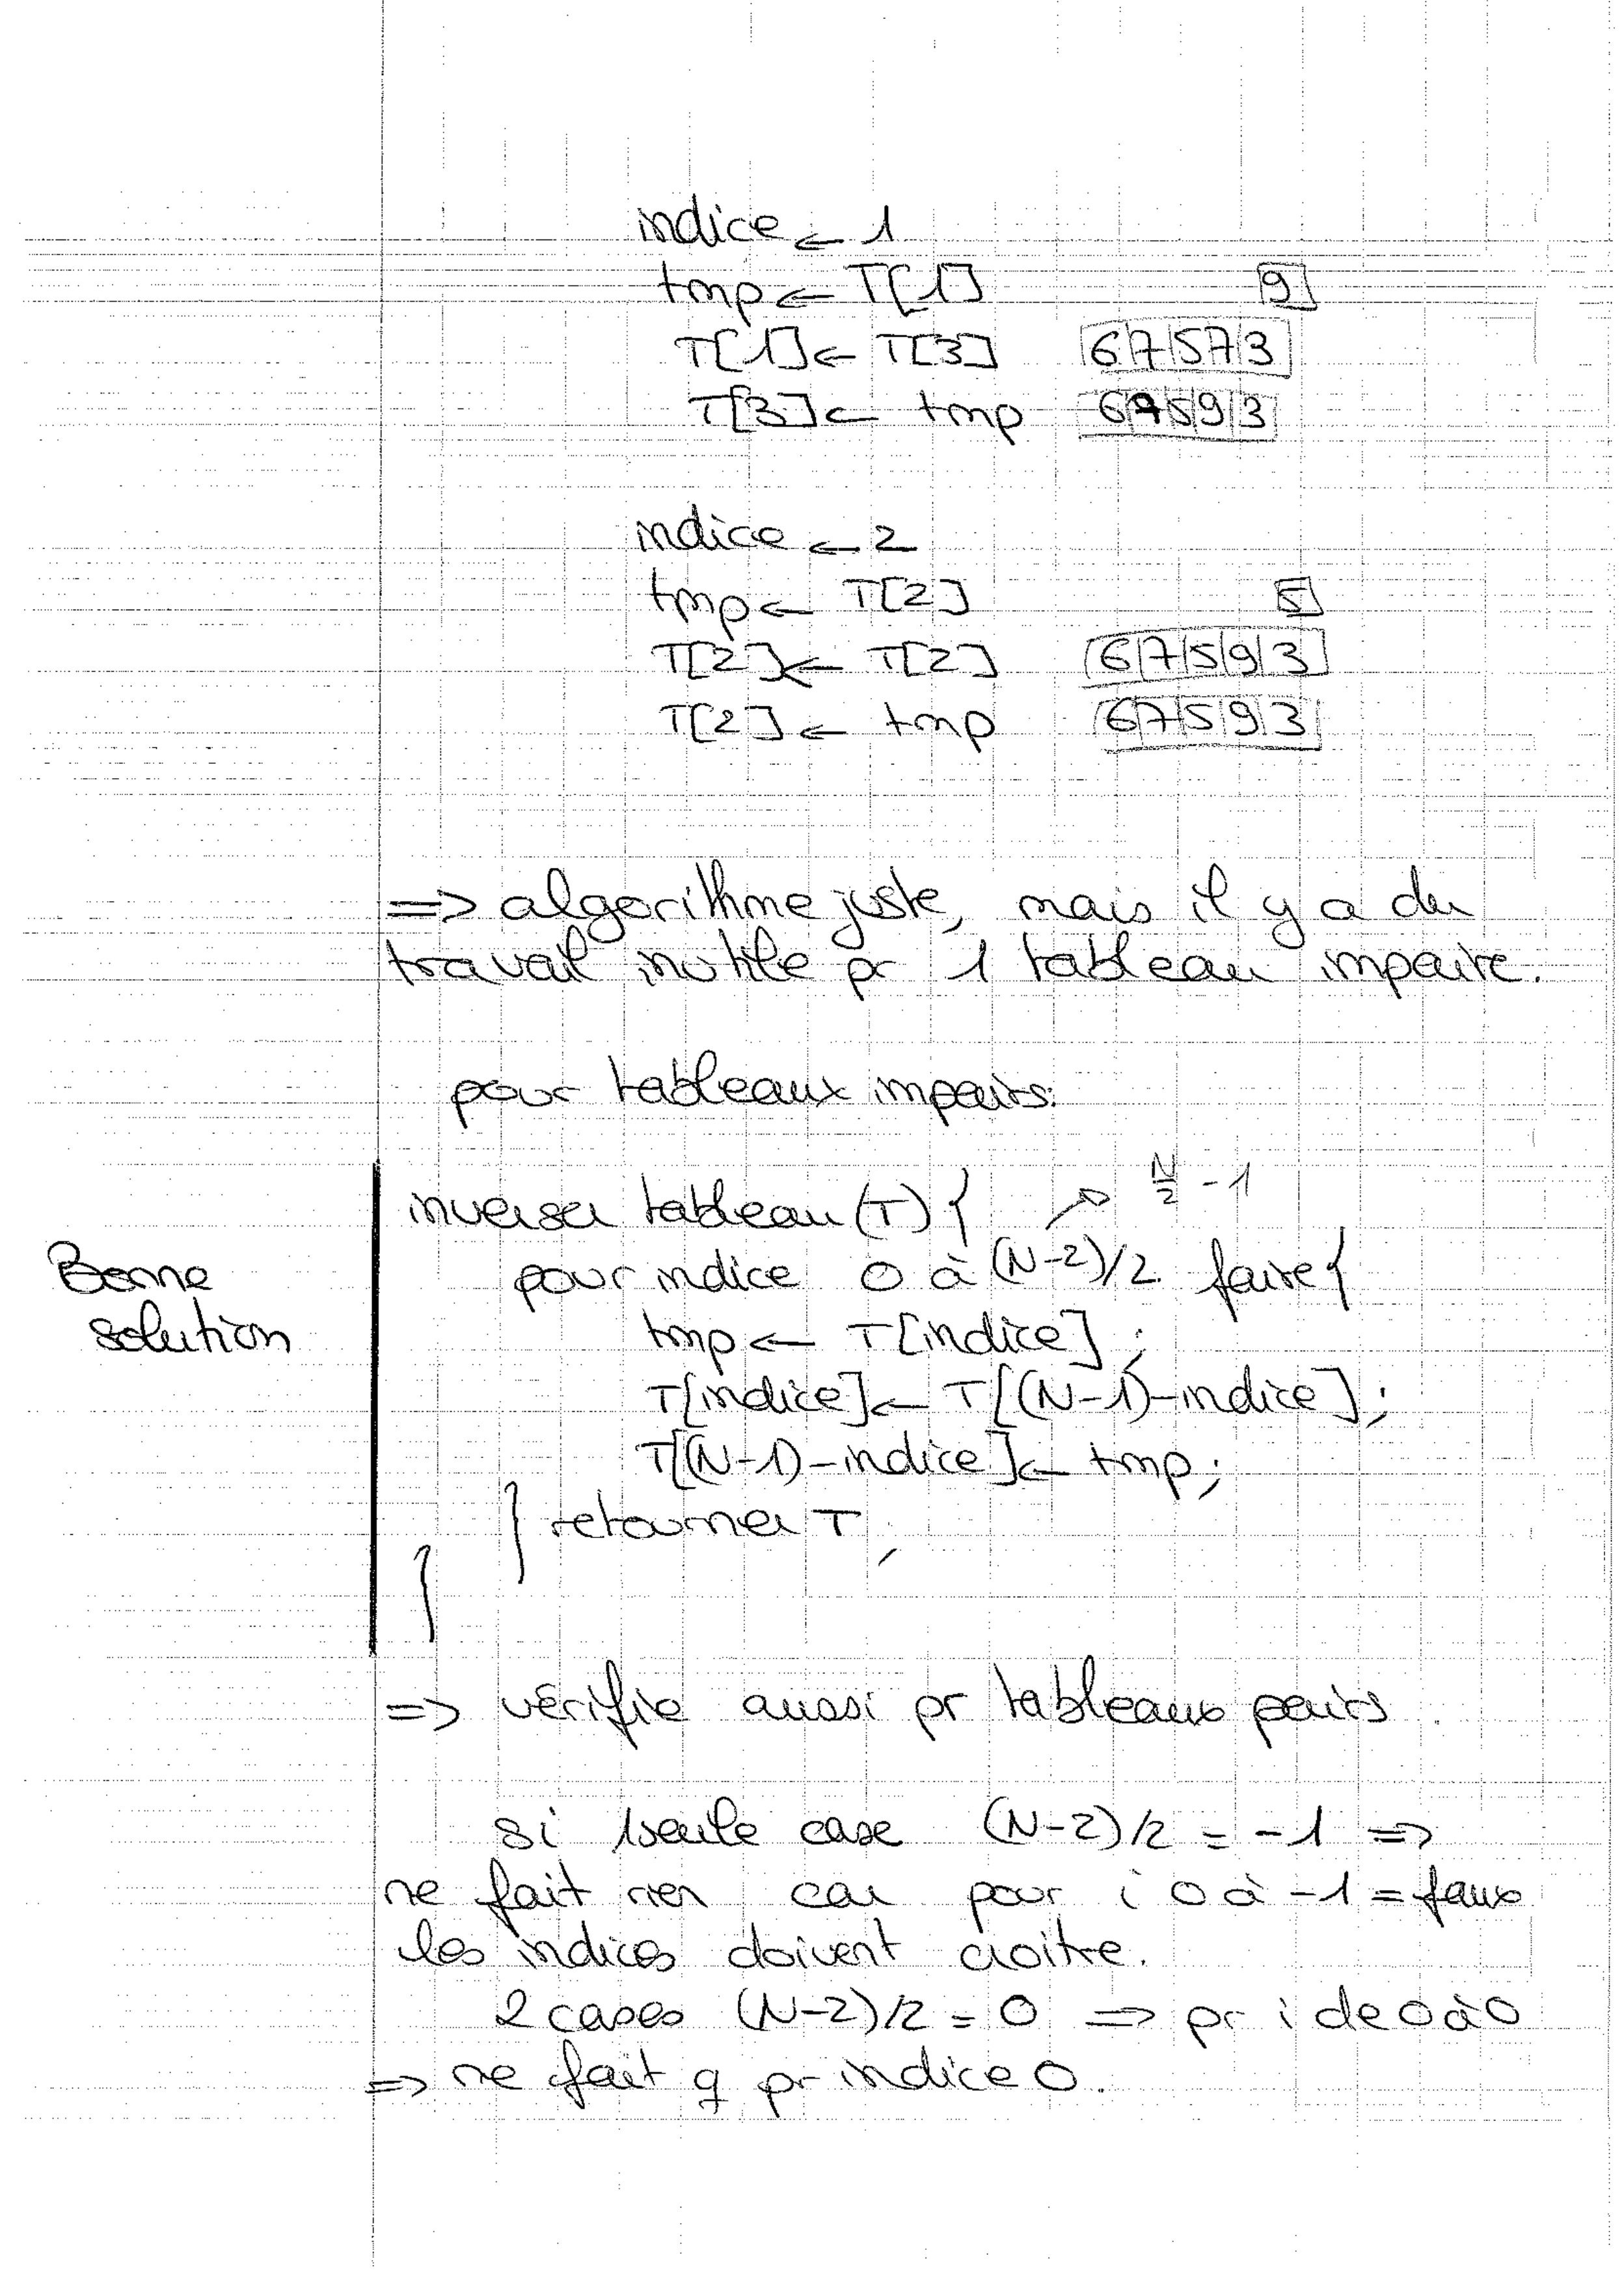 indice ← 1
tmp ← T[1] 9
T[1] ← T[3] 6|7|5|7|3
T[3] ← tmp 6|7|5|9|3
indice ← 2
tmp ← T[2] 5
T[2] ← T[2] 6|7|5|9|3
T[2] ← tmp 6|7|5|9|3
=> algorithme juste, mais il y a du
travail inutile pr 1 tableau impaire.
pour tableaux impairs:
N/2 - 1
inverser tableau (T) {
Bonne
solution
pour indice 0 à (N-2)/2 faire {
tmp ← T[indice] ;
T[indice] ← T[(N-1)-indice] ;
T[(N-1)-indice] ← tmp ;
} retourner T ;
}
=> vérifie aussi pr tableaux pairs.
si 1 seule case (N-2)/2 = -1 =>
ne fait rien car pour i 0 à -1 = faux
les indices doivent croitre.
2 cases (N-2)/2 = 0 => pr i de 0 à 0
=> ne fait q pr indice 0.